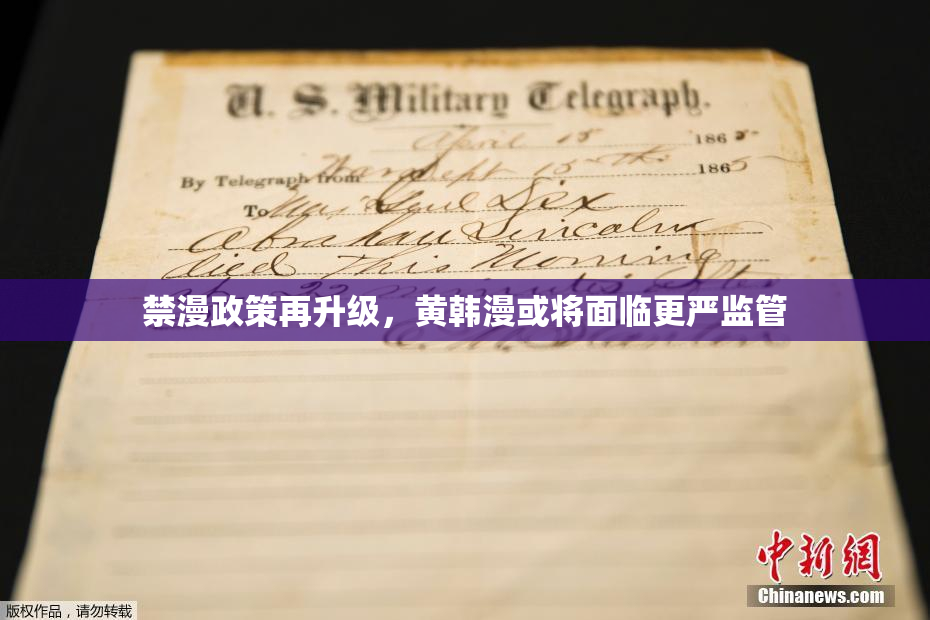 U. S. Military Telegraph.
April 15 1865
By Telegraph from War Dept 15th 1865
To Maj Genl Dix
Abraham Lincoln
died this Morning
at 22 minutes after
禁漫政策再升级，黄韩漫或将面临更严监管
E. M. Stanton
中新網
Chinanews.com
版权作品，请勿转载